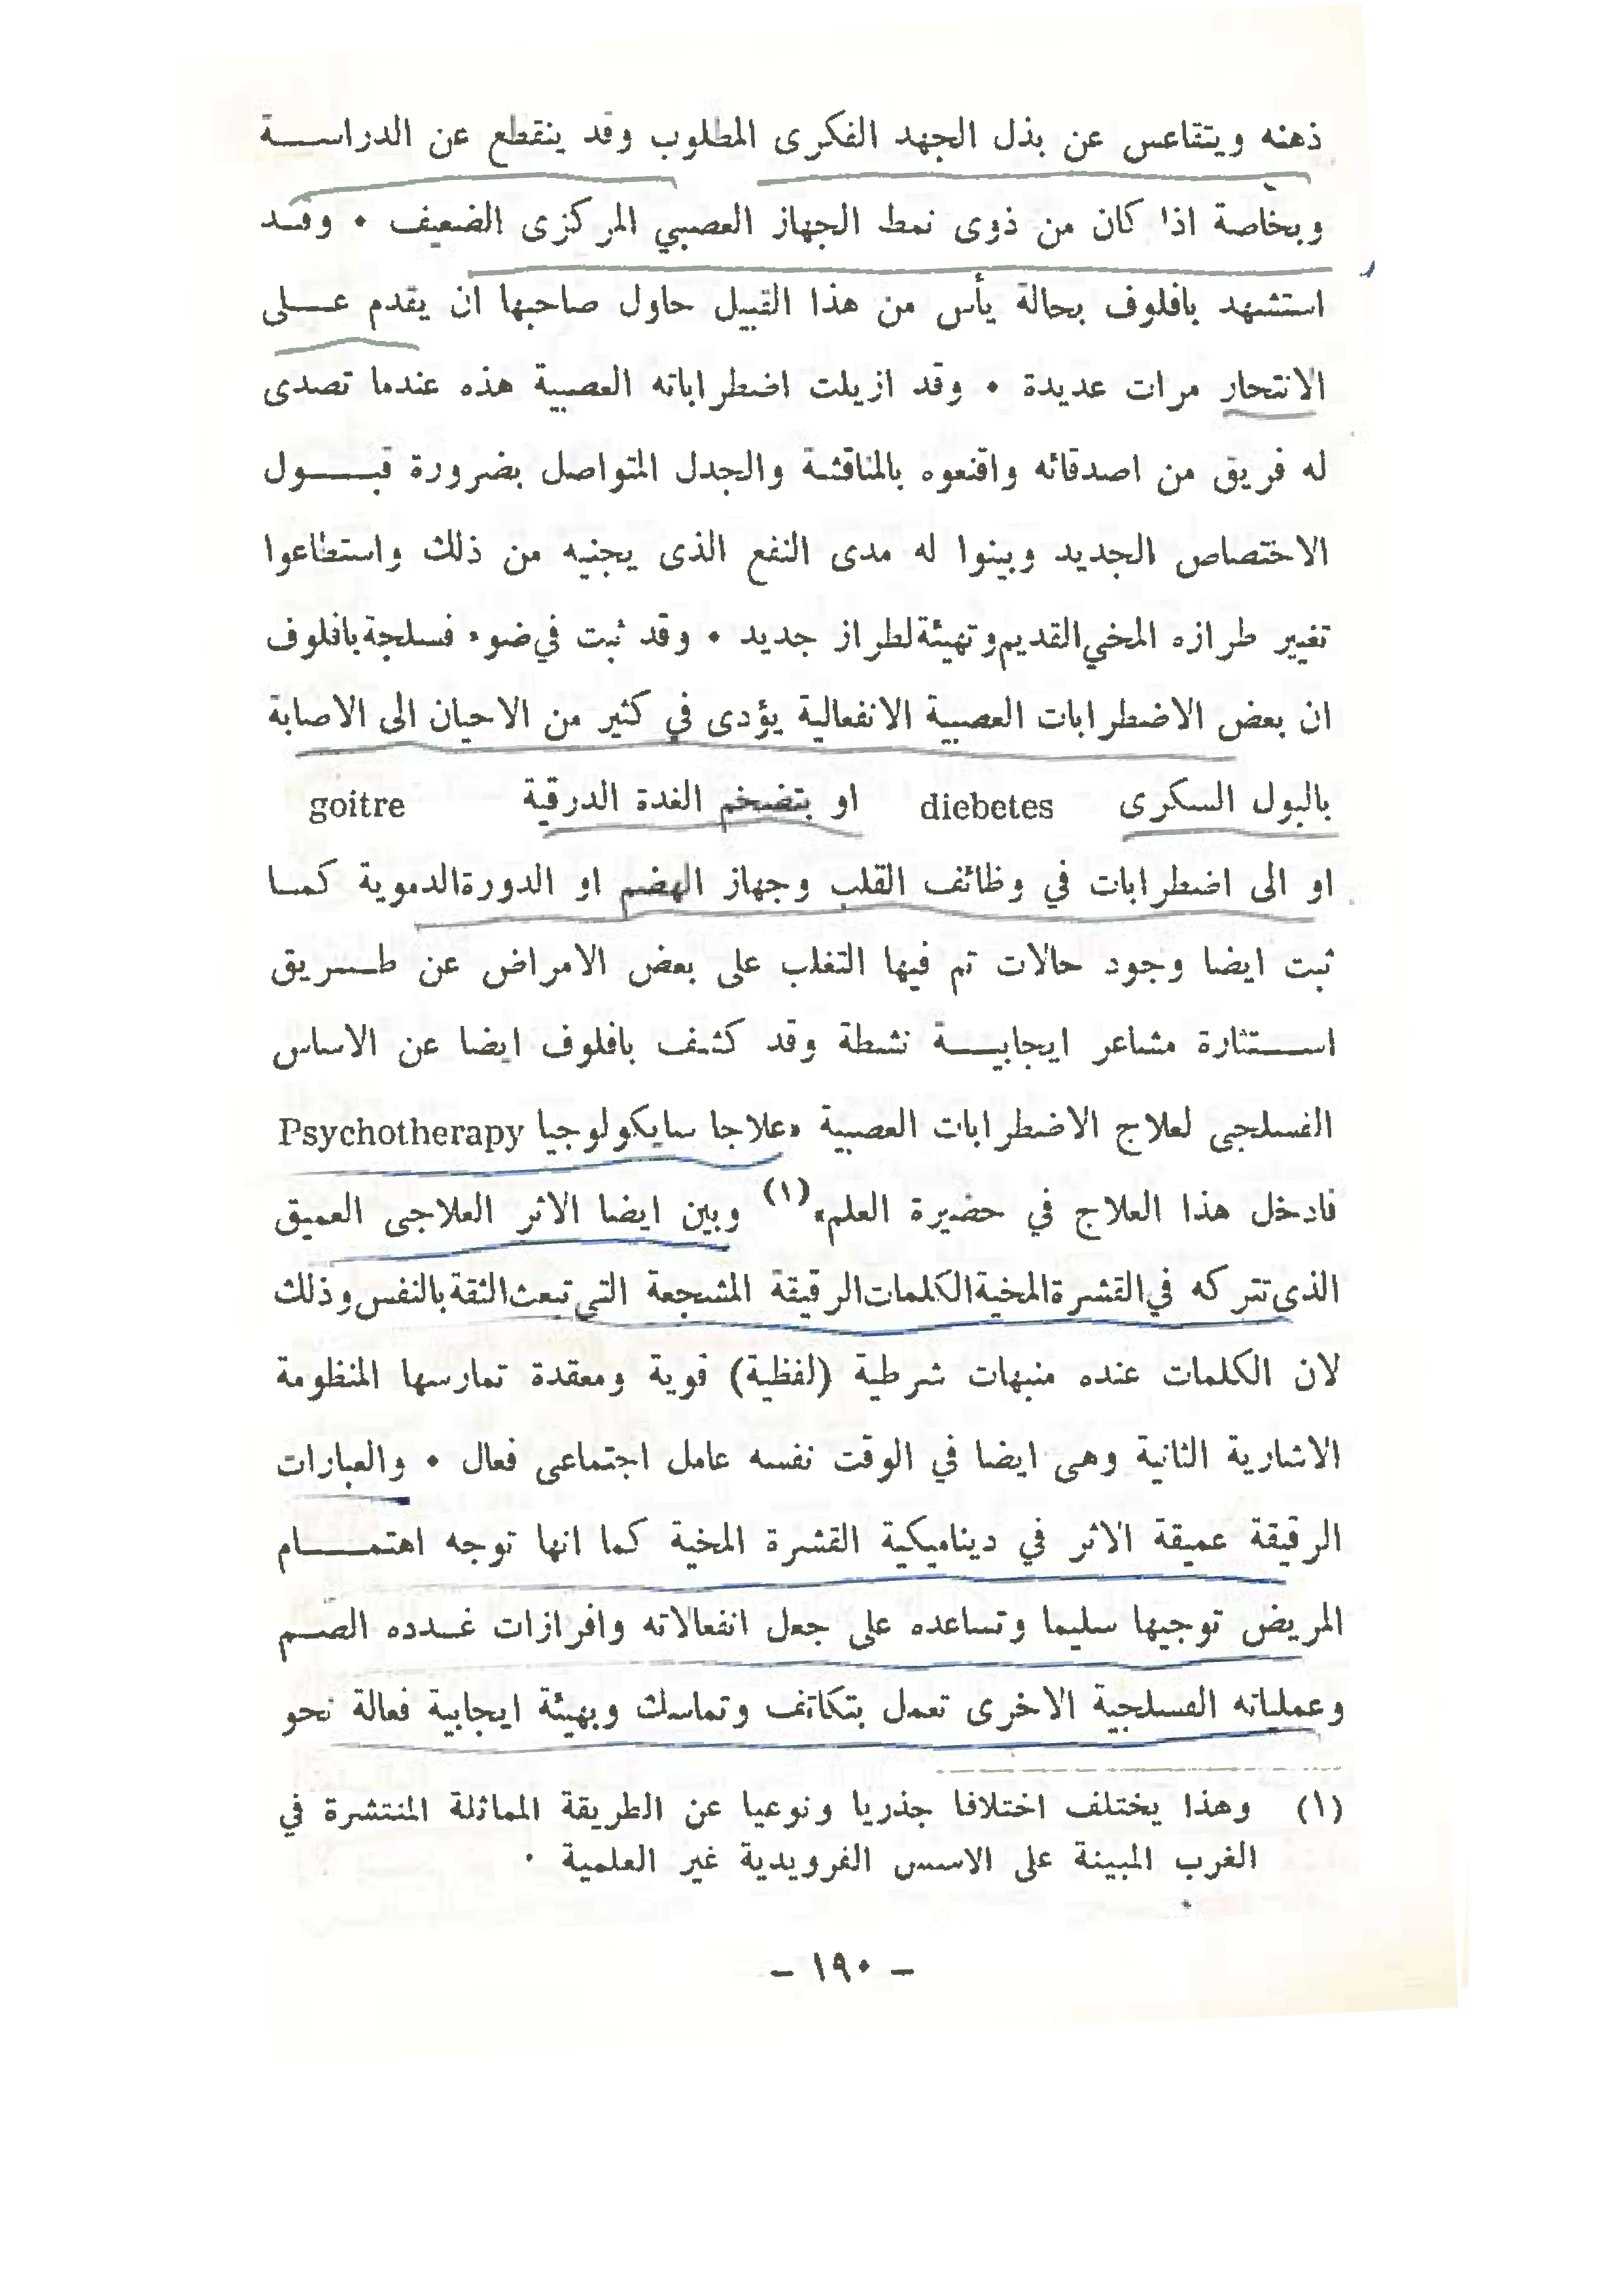 ذهنه ويتقاعس عن بذل الجهد الفكرى المطلوب وقد ينقطع عن الدراســـة
وبخاصة اذا كان من ذوى نمط الجهاز العصبي المركزى الضعيف ٠ وقـد
استشهد بافلوف بحالة يأس من هذا القبيل حاول صاحبها ان يقدم عـــلى
الانتحار مرات عديدة ٠ وقد ازيلت اضطراباته العصبية هذه عندما تصدى
له فريق من اصدقائه واقنعوه بالمناقشة والجدل المتواصل بضرورة قبـــول
الاختصاص الجديد وبينوا له مدى النفع الذى يجنيه من ذلك واستطاعوا
تغيير طرازه المخي القديم وتهيئة لطراز جديد ٠ وقد ثبت في ضوء فسلجة بافلوف
ان بعض الاضطرابات العصبية الانفعالية يؤدى في كثير من الاحيان الى الاصابة
بالبول السكرى diebetes او بتضخم الغدة الدرقية goitre
او الى اضطرابات في وظائف القلب وجهاز الهضم او الدورة الدموية كمـا
ثبت ايضا وجود حالات تم فيها التغلب على بعض الامراض عن طــريق
استــثارة مشاعر ايجابيـــة نشطة وقد كشف بافلوف ايضا عن الاساس
الفسلجى لعلاج الاضطرابات العصبية «علاجا سايكولوجيا Psychotherapy
فادخل هذا العلاج في حضيرة العلم»(١) وبين ايضا الاثر العلاجى العميق
الذى تتركه في القشرة المخية الكلمات الرقيقة المشجعة التي تبعث الثقة بالنفس وذلك
لان الكلمات عنده منبهات شرطية (لفظية) قوية ومعقدة تمارسها المنظومة
الاشارية الثانية وهى ايضا في الوقت نفسه عامل اجتماعى فعال ٠ والعبارات
الرقيقة عميقة الاثر في ديناميكية القشرة المخية كما انها توجه اهتمـــام
المريض توجيها سليما وتساعده على جعل انفعالاته وافرازات غـدده الصـم
وعملياته الفسلجية الاخرى تعمل بتكاتف وتماسك وبهيئة ايجابية فعالة نحو
(١) وهذا يختلف اختلافا جذريا ونوعيا عن الطريقة المماثلة المنتشرة في
الغرب المبينة على الاسس الفرويدية غير العلمية ٠
– ١٩٠ –